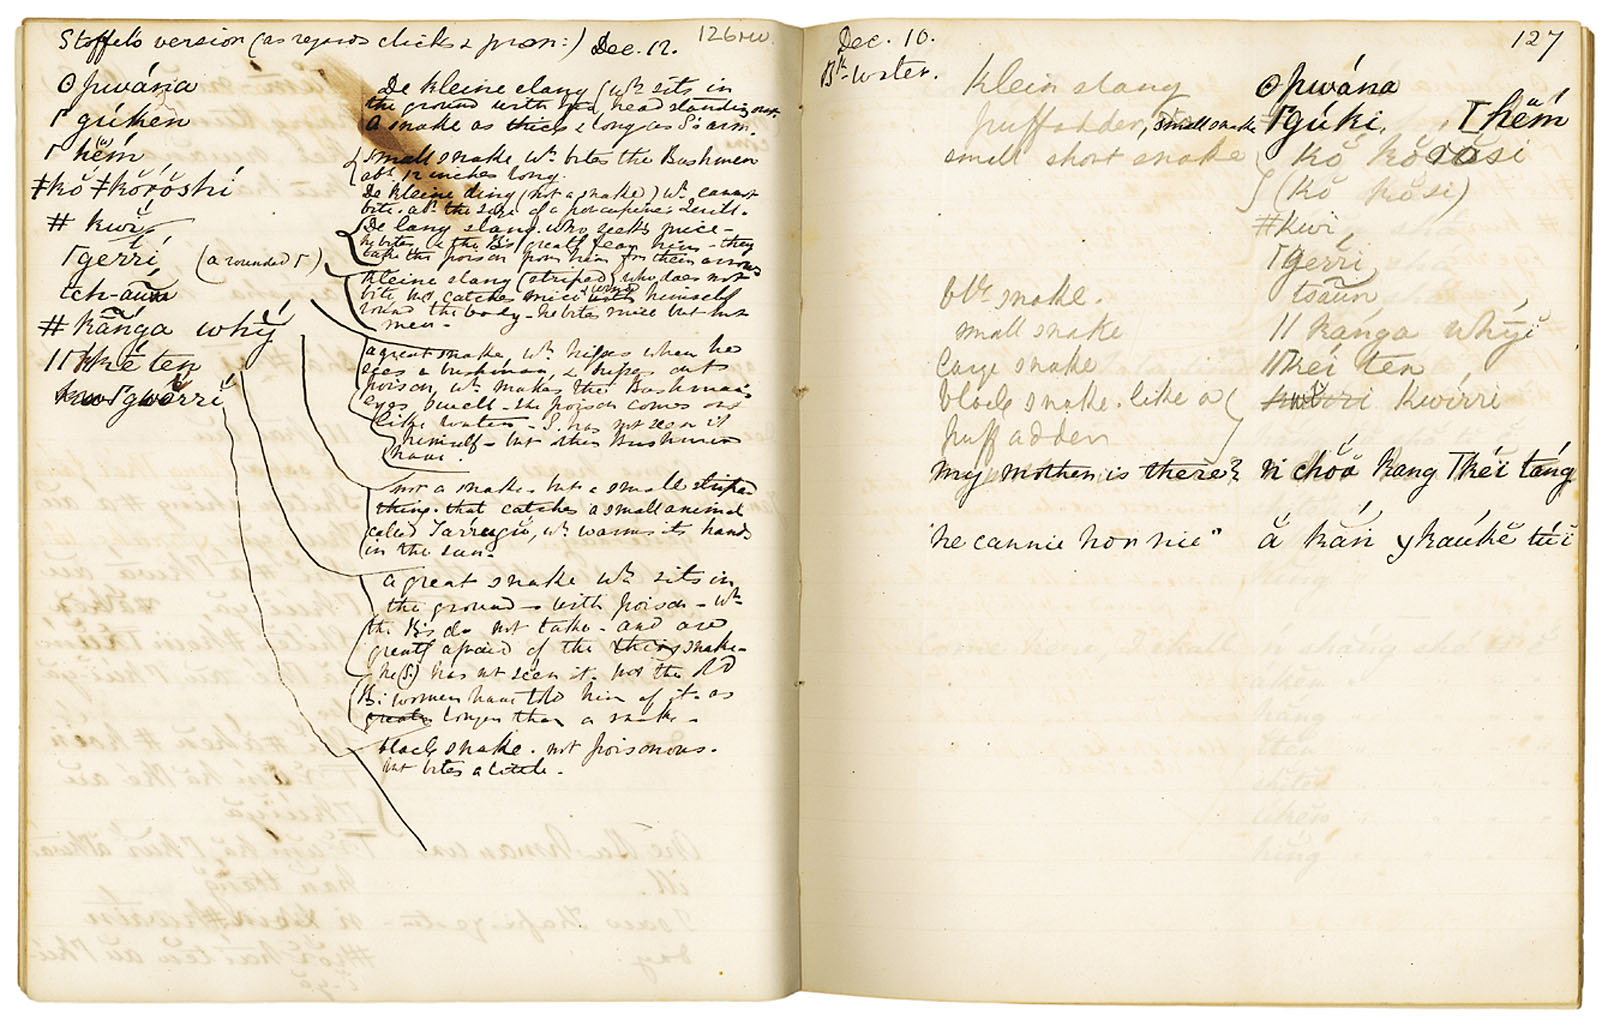 Stoffel's version (as regards clicks & pron:) Dec. 12.
126 rev.
ʘ pwána
ꓩ gúken
ꓩ hĕm
ǂkŏ ǂkŏrŏshí
# kwĭ
ꓩgĕrrí (a rounded ꓩ)
tch-aún
# kănga whý
ꓩké ten
ꓩgwĕrrĭ
De kleine slang (wh. sits in
the ground with his head standing out.
A snake as thick & long as S's arm.
Small snake wh. bites the Bushmen
abt. 12 inches long.
De kleine ding (not a snake) wh. cannot
bite. abt. the size of a porcupine's quill.
De lang slang. who seeks mice -
he bites & the B's greatly fear him - they
take the poison from him for their arrows
Kleine slang (striped) who does not
bite catches mice winds himself
round the body - he bites mice but not
men -
a great snake, wh. hisses when he
sees a bushman, & hisses out
poison, wh. makes the Bushman's
eyes swell - the poison comes out
like water - S. has not seen it
himself - but other Bushmen
have.
not a snake - but a small striped
thing. that catches a small animal
called wh. warms its hands
in the sun.
a great snake wh. sits in
the ground - with poison - wh.
the B's do not take - and are
greatly afraid of the snake -
he (S.) has not seen it. but the old
B: women have told him of it. as
longer than a snake -
black snake. not poisonous.
but bites a little.
Dec. 10.
127
Bk-water.
klein slang ʘ pwána
puffadder, small snake ꓩgúki, ꓩhĕm
small short snake kŏ kŏrŏsi
(kŏ kŏsi)
#kwi
ꓩgĕrri
ble snake. tsaŭn
small snake // kánga whýĭ
large snake ꓩkéi ten
black snake. like a kwirri
puffadder
my mother is there? n chóă kang ꓩkéi táng
"he cannie hor nie" ă kán ykaúkĕ túĭ